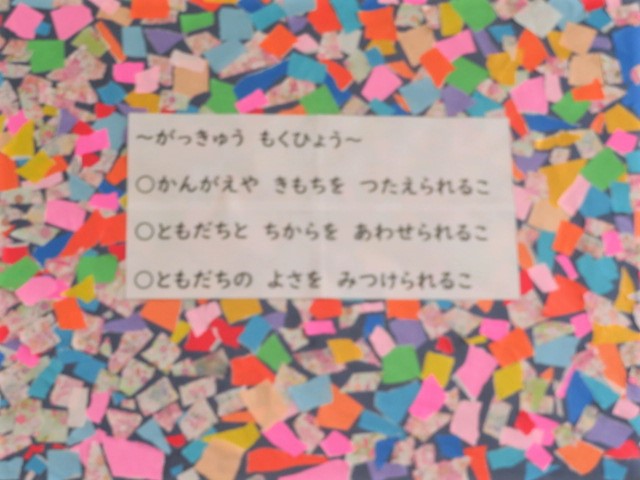 ～がっきゅう もくひょう～
○かんがえや きもちを つたえられるこ
○ともだちと ちからを あわせられるこ
○ともだちの よさを みつけられるこ